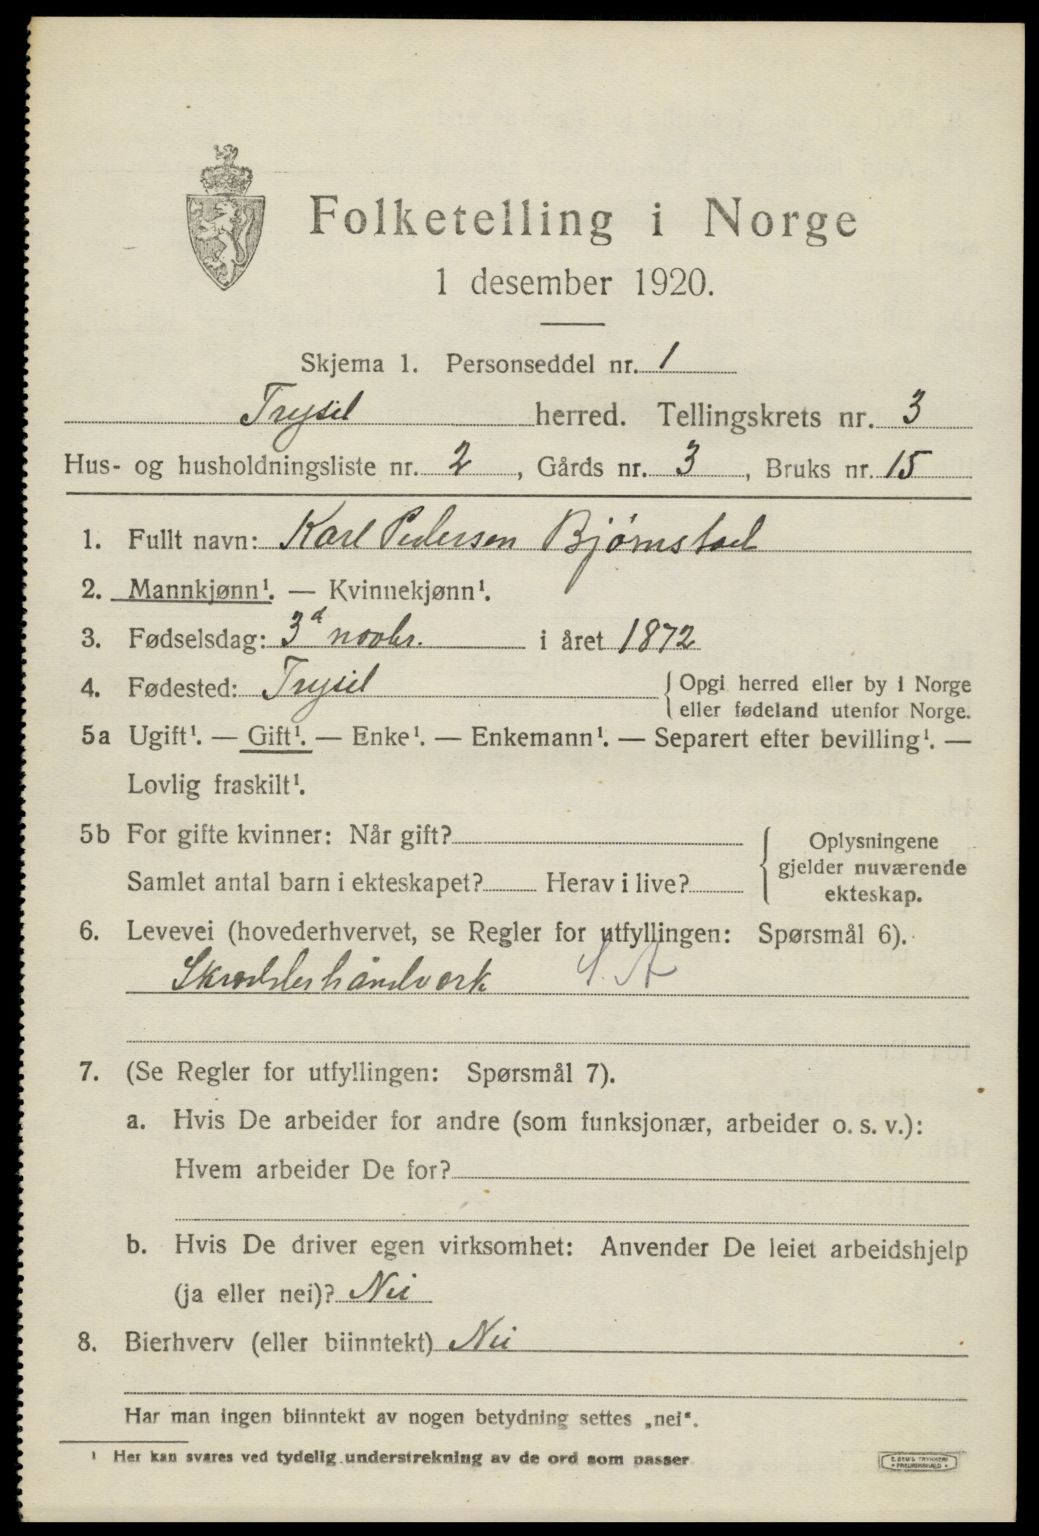 Folketelling i Norge
1 desember 1920.
Skjema 1. Personseddel nr. 1
Trysil herred. Tellingskrets nr. 3
Hus- og husholdningsliste nr. 2, Gårds nr. 3, Bruks nr. 15
1. Fullt navn: Karl Pedersen Bjørnstad
2. Mannkjønn¹. — Kvinnekjønn¹.
3. Fødselsdag: 3d novbr. i året 1872
4. Fødested: Trysil { Opgi herred eller by i Norge
eller fødeland utenfor Norge.
5a Ugift¹. — Gift¹. — Enke¹. — Enkemann¹. — Separert efter bevilling¹. —
Lovlig fraskilt¹.
5b For gifte kvinner: Når gift?
Samlet antal barn i ekteskapet? Herav i live?
{ Oplysningene
gjelder nuværende
ekteskap.
6. Levevei (hovederhvervet, se Regler for utfyllingen: Spørsmål 6).
Skrædderhåndverk S. A
7. (Se Regler for utfyllingen: Spørsmål 7).
a. Hvis De arbeider for andre (som funksjonær, arbeider o. s. v.):
Hvem arbeider De for?
b. Hvis De driver egen virksomhet: Anvender De leiet arbeidshjelp
(ja eller nei)? Nei
8. Bierhverv (eller biinntekt) Nei
Har man ingen biinntekt av nogen betydning settes „nei“.
¹ Her kan svares ved tydelig understrekning av de ord som passer